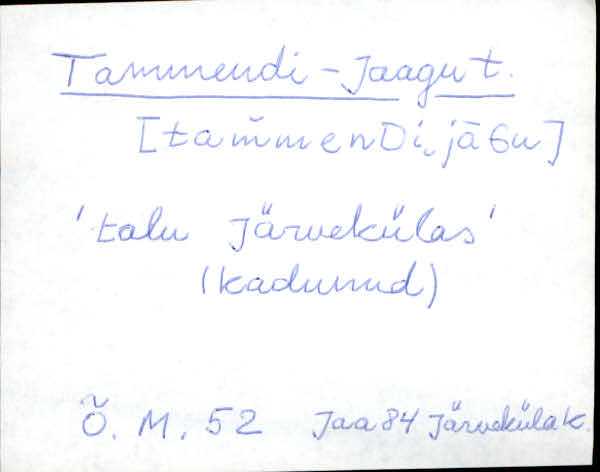 Tammendi-Jaagu t.
[tam̆menDi‿jāGu]
'talu Järvekülas'
(kadunud)
Õ. M. 52 Jaa 84 Järveküla k.